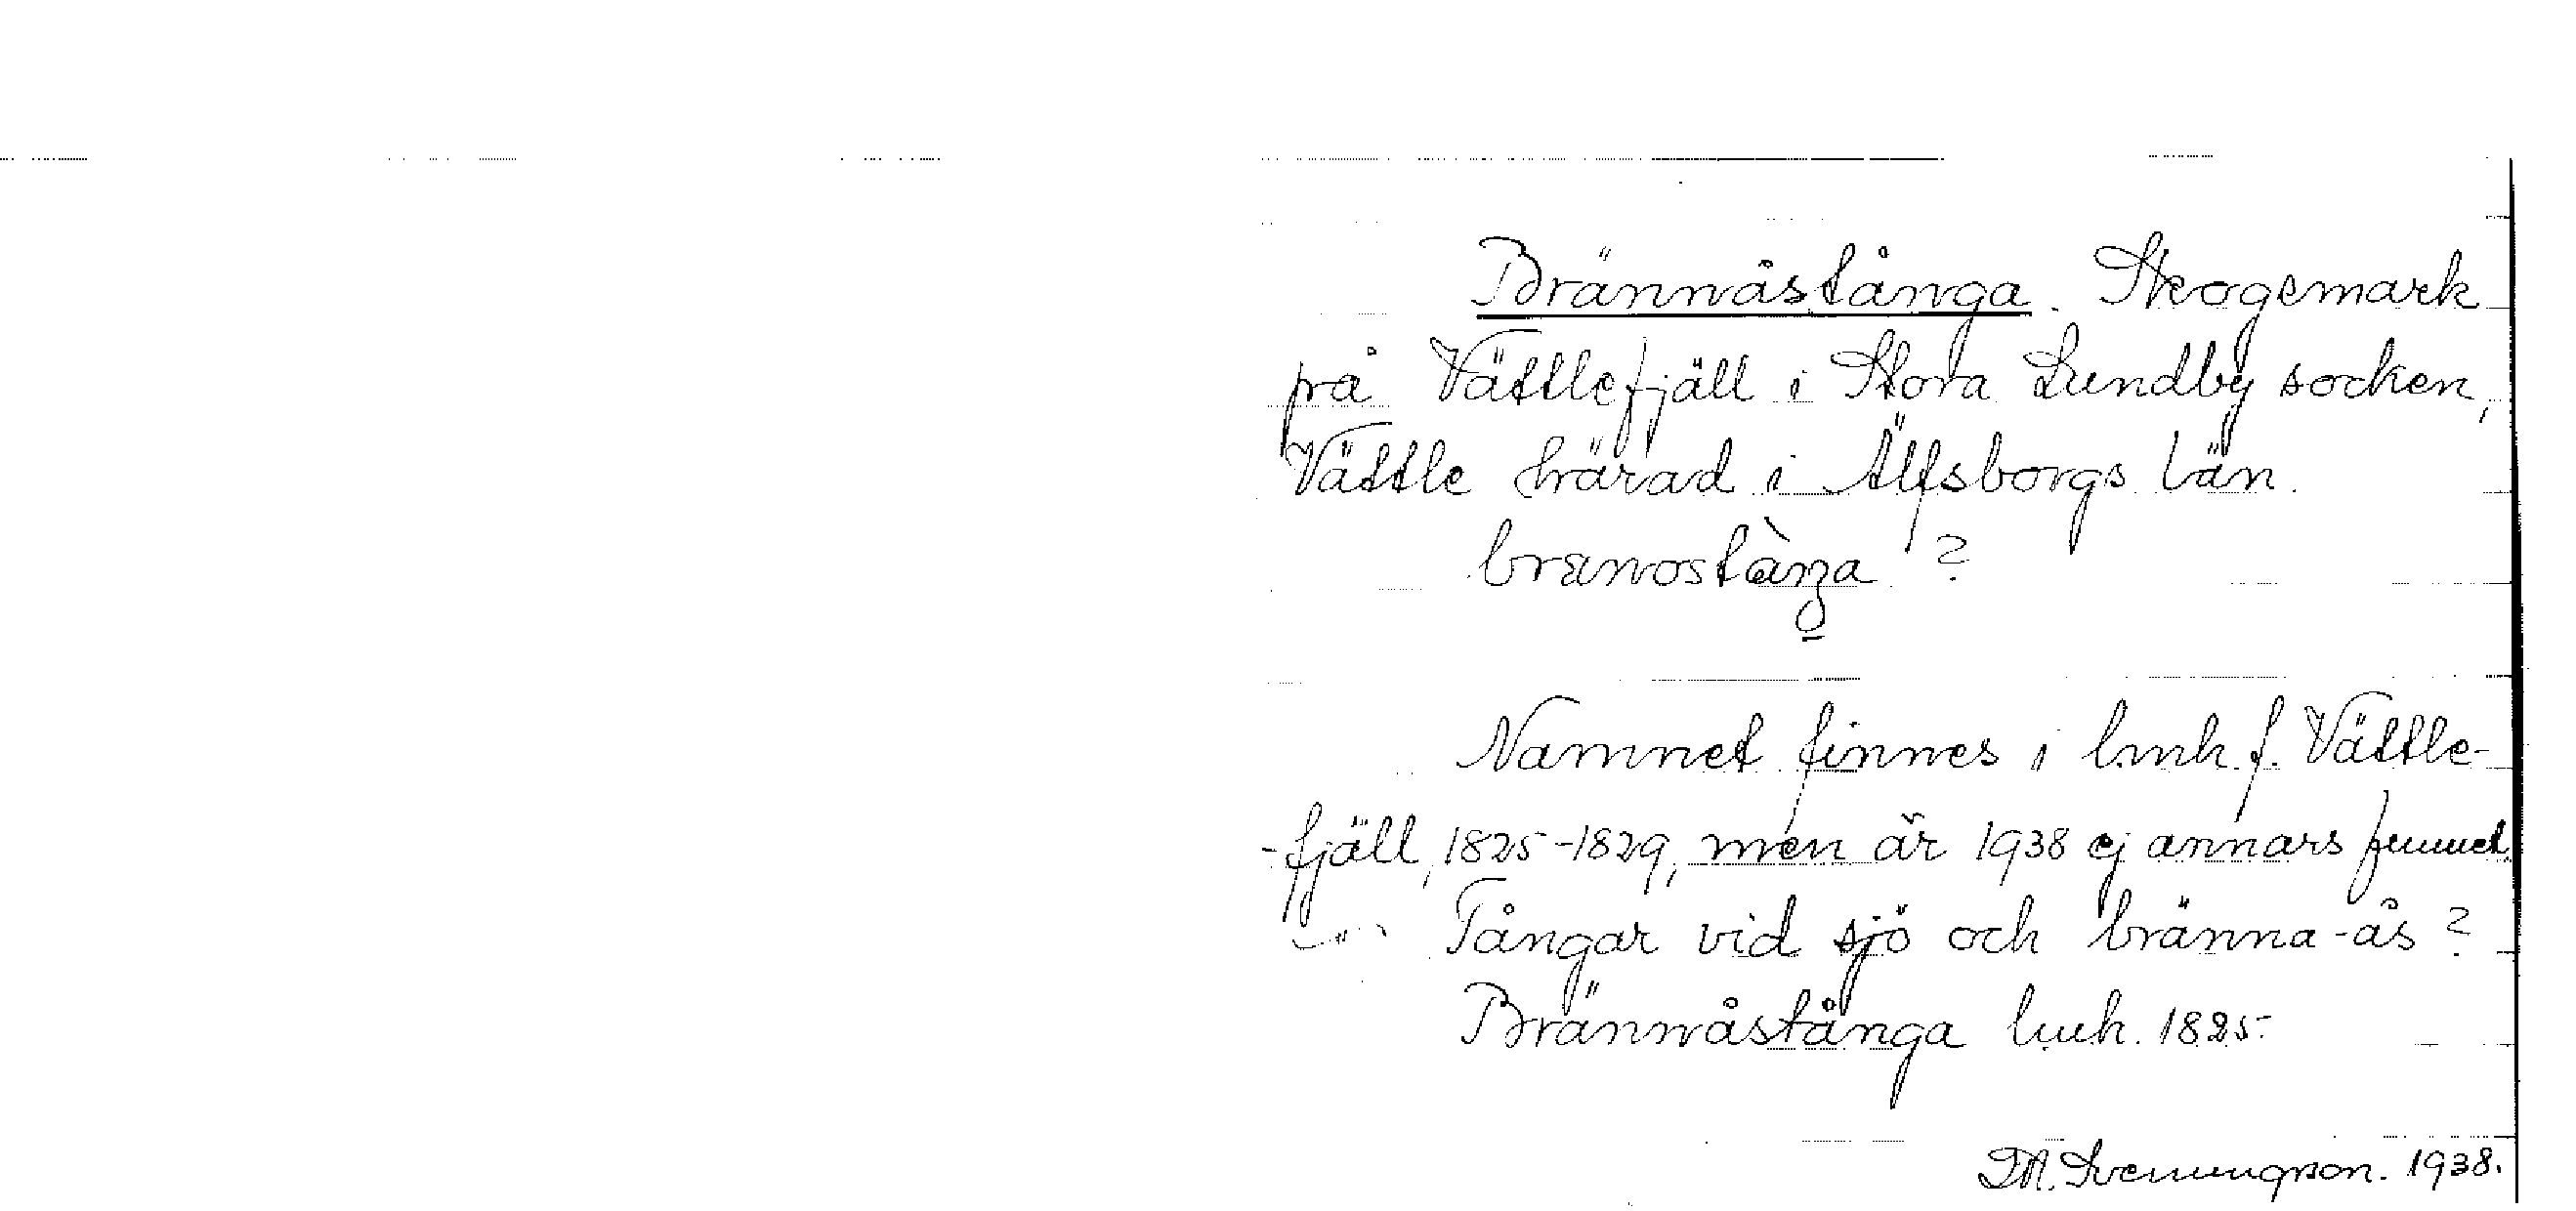 Brännåstånga. Skogsmark
på Vättlefjäll i Stora Lundby socken,
Vättle härad i Älfsborgs län.
?
Namnet finnes i lmk f. Vättle-
-fjäll, 1825-1829, men är 1938 ej annars funnet.
Tångar vid sjö och bränna-ås?
Brännåstånga lmk. 1825.
Svenungson. 1938.